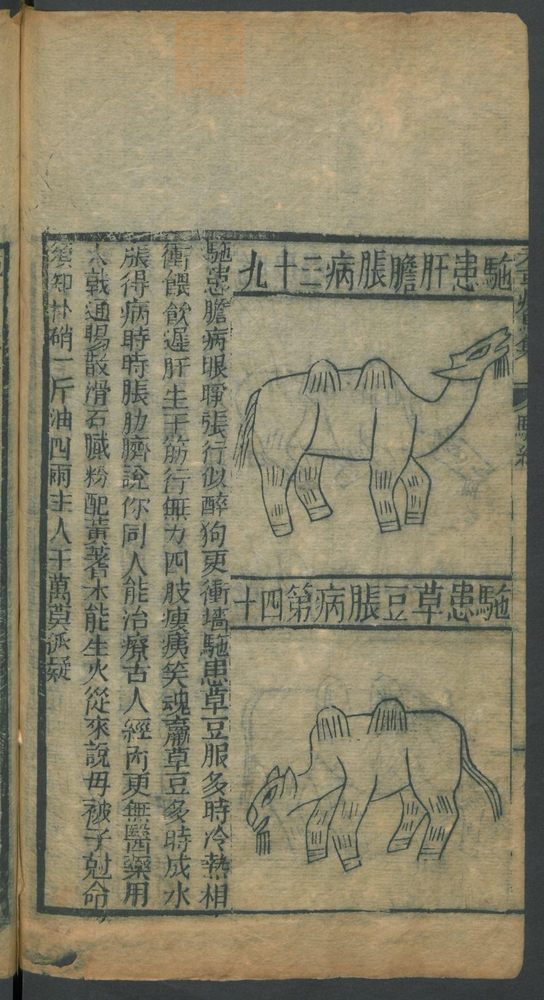 駞患肝膽脹病三十九
駞患草豆脹病第四十
駞患膽病眼睜張行似醉狗更衝墻駞患草豆服多時冷熱相
衝餵飲遲肝生于筋行無力四肢笑魂草豆多時成水
脹得病時時脹肋臍說你同人能治療古人經內更無醫藥用
大戟通腸散滑石膩粉配黃蓍木能生火從來說毋被子尅命
須知朴硝一斤油四兩主人千萬莫狐疑